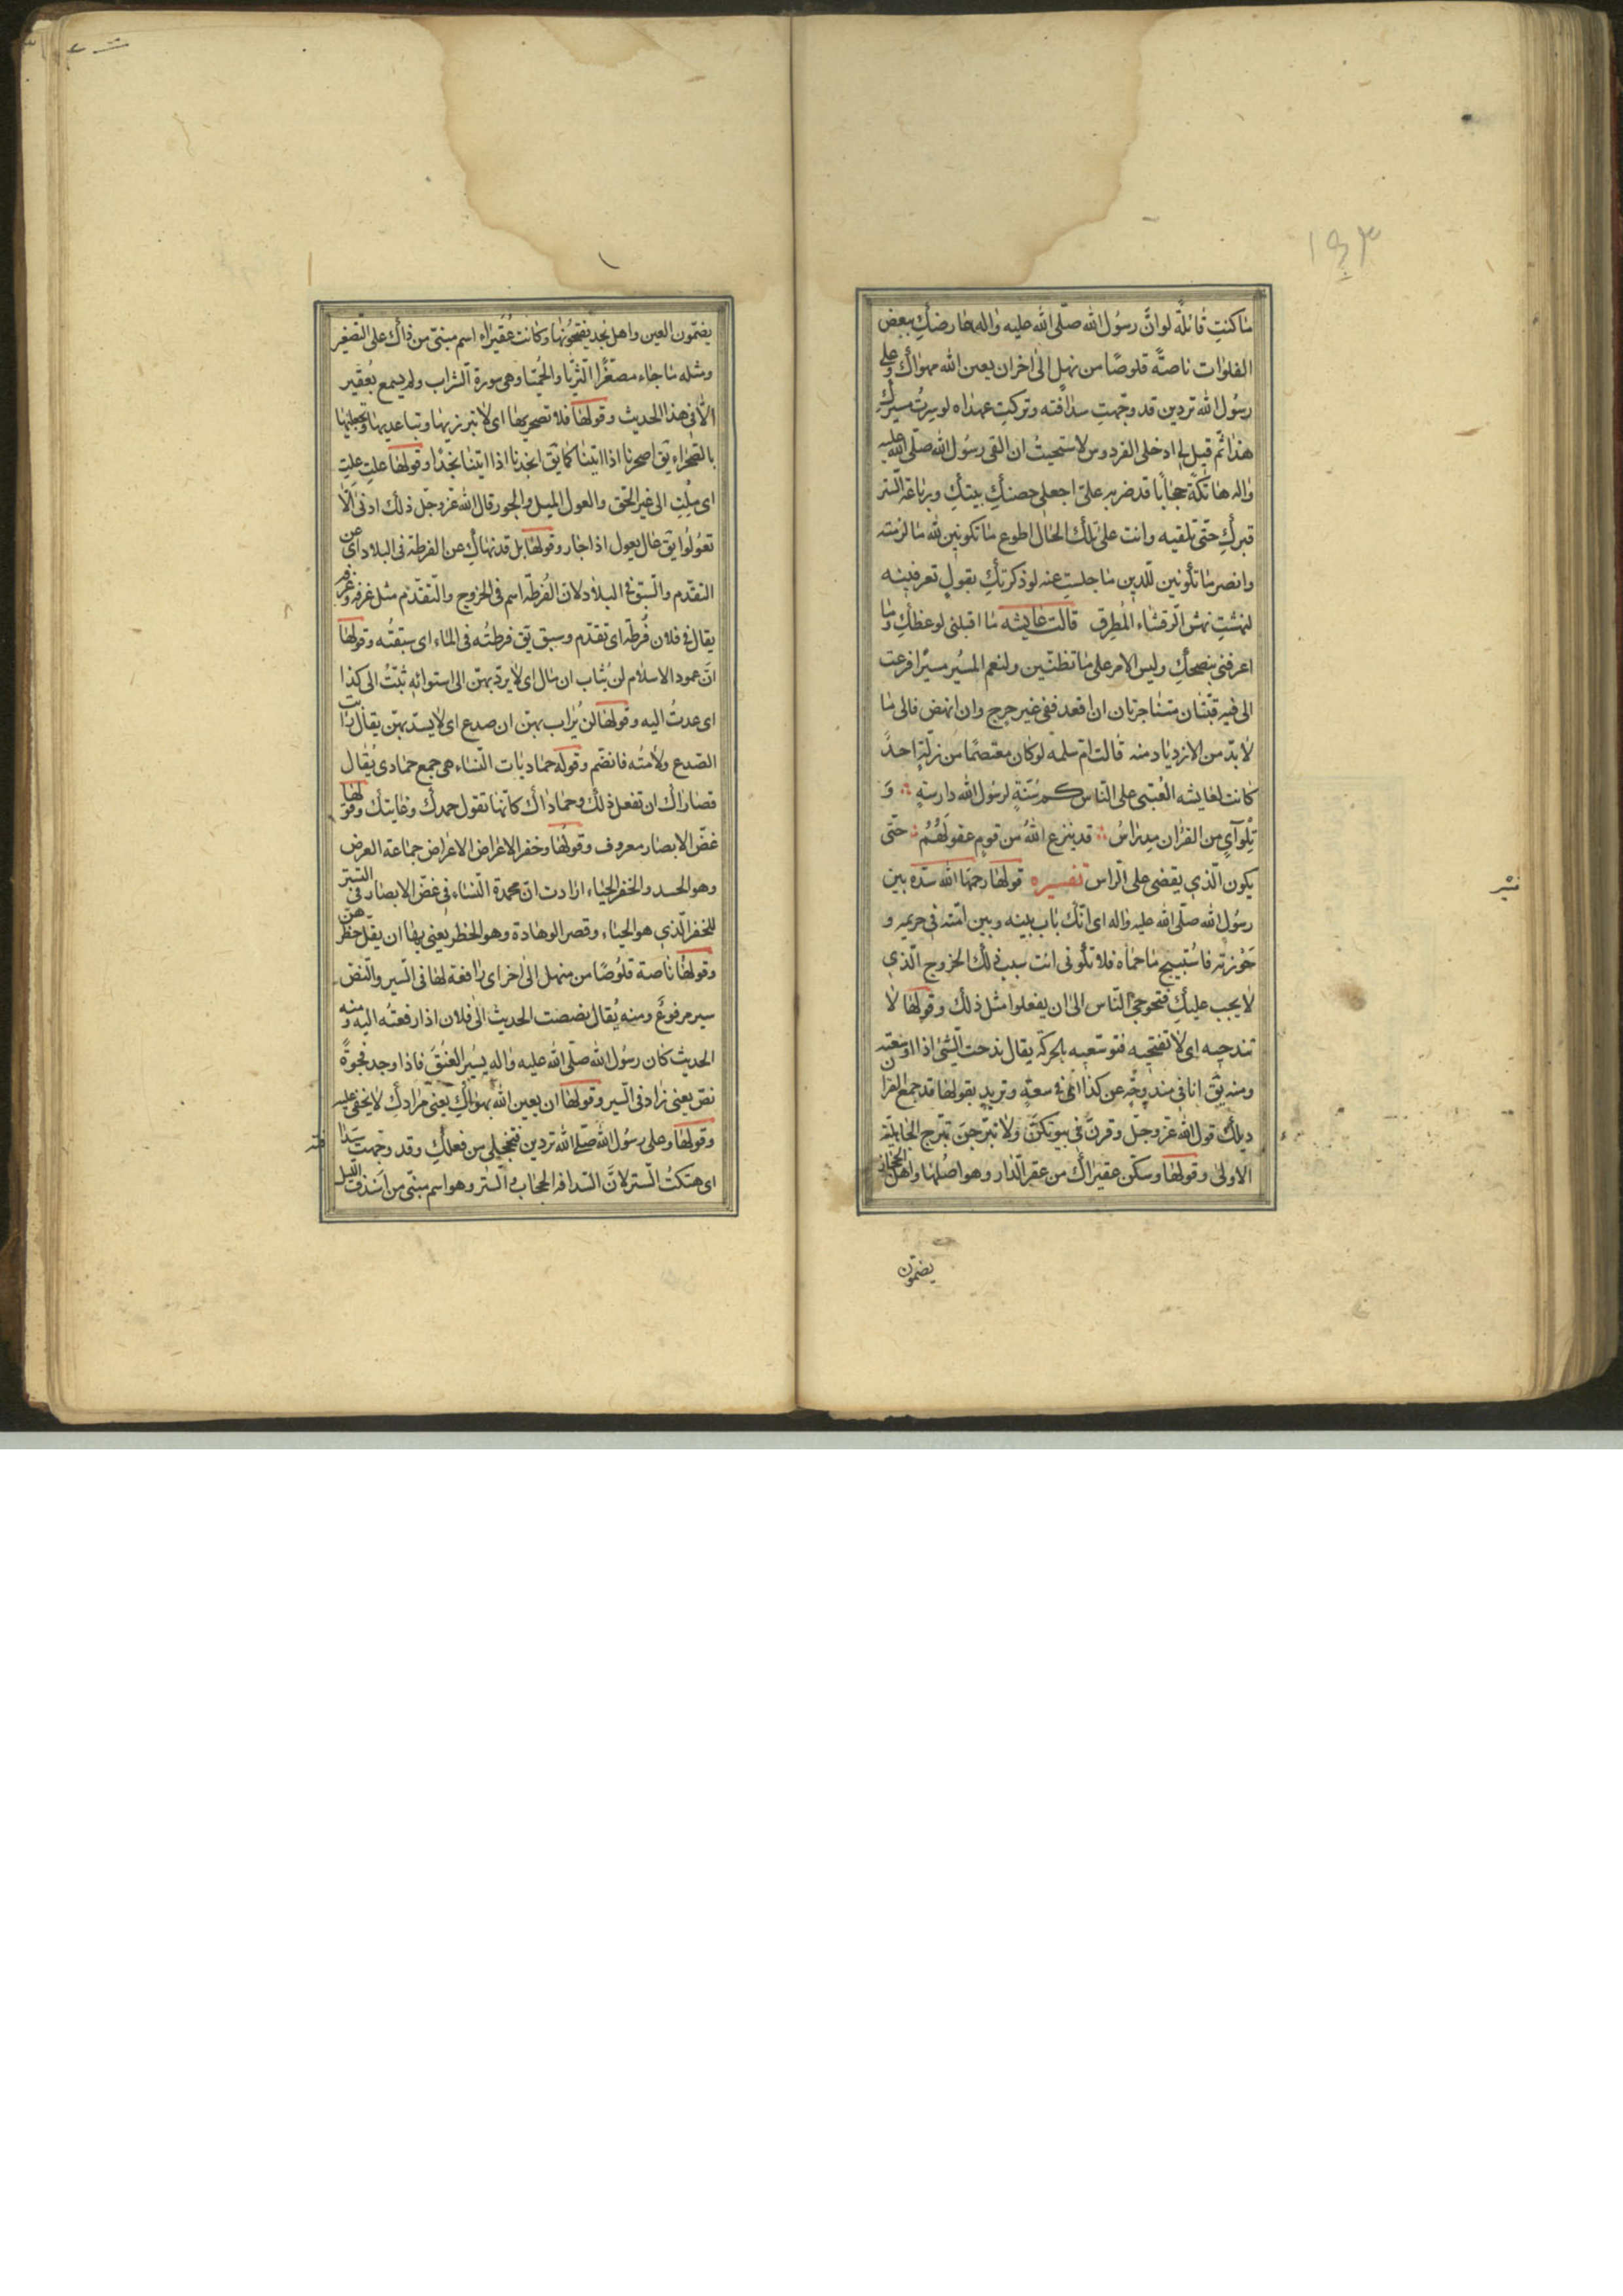 ١٤٣
ما كنتِ قائلةً لو انّ رسول الله صلّى الله عليه واله عارضكِ ببعض
الفلوات ناصةً قلوصًا من نهلٍ الى اخر ان بعين الله مهواك وعلى
رسول الله تردين قد وجّهتِ سدافته وتركتِ عهيداه لو سرت مسيركِ
هذا ثم قيل لي ادخلى الفردوس لاستحييتُ ان القى رسول الله صلّى الله عليه
واله هاتكةً حجابًا قد ضربه علىّ اجعلى حصنكِ بيتكِ ورباعة الستر
قبركِ حتّى تلقيه وانت على تلك الحال اطوع ما تكونين لله ما لزمته
وانصر ما تكونين للدين ما جلستِ عنه لو ذكرتكِ بقولٍ تعرفينه
لنهشتِ نهش الرقشاء المُطرِق قالت عايشه ما اقبلنى لوعظكِ وما
اعرفنى بنصحكِ وليس الامر على ما تظنّين ولنعم المسير مسيرًا فزعت
الى فيه فئتان متشاجرتان ان اقعد ففى غير حرج وان انهض فالى ما
لا بدّ من الازدياد منه قالت امّ سلمة لو كان معتصمًا من زلّةٍ احدٌ
كانت لعايشه العُتبى على النّاس كم سُنّةٍ لرسول الله دارسةٍ وَ
تِلو آىٍ من القرآن مدراسُ قد ينزع الله من قومٍ عقولَهُمُ حتّى
يكون الّذى يقضى على الراس تفسيره قولها رحمها الله سدّه بين
رسول الله صلّى الله عليه واله اى انّك باب بينه وبين امّته فى حريمه و
حَوْزته فاستبيح ما حماه فلا تكونى انت سبب ذلك الخروج الّذى
لا يجب عليكِ فتحوجى النّاس الى ان يفعلوا مثل ذلك وقولها لا
تندحيه اى لا تفتحيه فتوسّعيه بالحركة يقال ندحت الشئ اذا اوسعته
ومنه يق انا فى مندوحةٍ عن كذا اى فى سعةٍ وتريد بقولها قد جمع القرآن
ذيلك قول الله عزّ وجلّ وقرنَ فى بيوتكنّ ولا تبرّجن تبرّج الجاهليّة
الاولى وقولها وسكّن عقيراك من عقر الدار وهو اصلها واهل الحجاز
يضمّون
يضمّون العين واهل نجد يفتحونها وكانت عُقيراء اسم مبنىّ من ذاك على التصغير
ومثله ما جاء مصغّرًا الثريّا والحُميّا وهى سورة الشراب ولم يسمع بعقير
الّا فى هذا الحديث وقولها فلا تصحريها اى لا تبرزيها وتباعديها وتجعليها
بالصحراء يق اصحرنا اذا اتينا كما يق انجدنا اذا اتينا نجدًا وقولها علتِ علتِ
اى ملتِ الى غير الحق والعول الميل والجور قال الله عزّ وجلّ ذلك ادنى الّا
تعولوا يق عال يعول اذا جار وقولها بل قد نهاكِ عن الفرطة فى البلاد اى عن
التقدّم والسبق فى البلاد لان الفُرطة اسم فى الخروج والتقدّم مثل غرفة وغرفة
يقال فى فلان فُرطة اى تقدّم وسبق يق فرطته فى الماء اى سبقتُه وقولها
انّ عمود الاسلام لن يُثاب ان مال اى لا يردّ بهنّ الى استوائه ثبتُ الى كذا
اى عدتُ اليه وقولها لن يُرأب بهنّ ان صدع اى لا يسدّ بهنّ يقال رأبت
الصدع ولأمته فانضم وقوله حماديات النساء هى جمع حمادى يُقال
قصاراك ان تفعل ذلك وحماداك كانّها تقول حمدك وغايتك وقولها
غضّ الابصار معروف وقولها وخفر الاعراض الاعراض جماعة العرض
وهو الجسد والخفر الحياء ارادت ان محمدة النساء فى غضّ الابصار وفى التستّر
للخفر الّذى هو الحياء وقصر الوهادة وهو الخطو يعنى بها ان يقلّ خطوهنّ
وقولها ناصة قلوصًا من منهل الى اخر اى رافعة لها فى السير والنصّ
سير مرفوعٌ ومنه يُقال نصصت الحديث الى فلان اذا رفعته اليه ومنه
الحديث كان رسول الله صلّى الله عليه واله يسير العَنَقَ فاذا وجد فجوةً
نصّ يعنى زاد فى السير وقولها ان بعين الله مهواكِ يعنى مرادكِ لا يخفى عليه
وقولها وعلى رسول الله صلّى الله تردين فتخجلى من فعلكِ وقد وجّهتِ سدافته
اى هتكتُ الستر لانّ السدافة الحجاب والستر وهو اسم مبنىّ من اسدف الليل